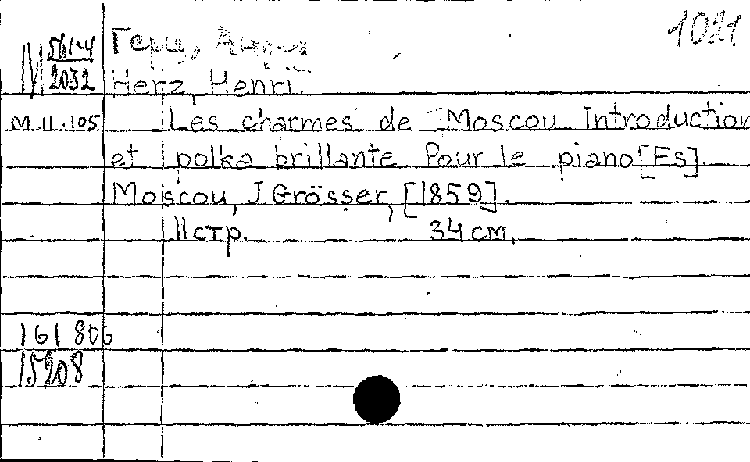 1021
М 561-4
2032
Герц, Анри
Herz, Henri.
М.II.105 Les charmes de Moscou Introduction
et polka brillante Pour le piano [Es].
Moscou, J Grösser, [1859].
11 стр. 34 cm.
161 806
15908